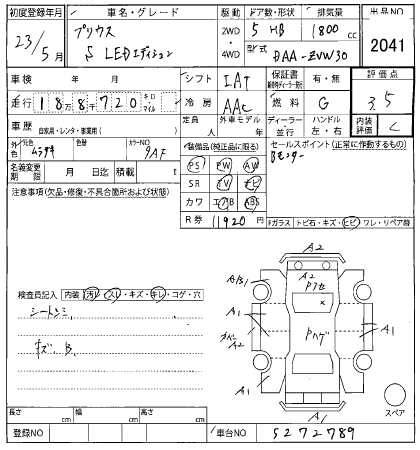 初度登録年月 車名・グレード 駆動 ドア数・形状 排気量 出品NO
23/5月 プリウス S LEDエディション 2WD・4WD 5 HB 1800cc 2041
型式 DAA-ZVW30
車検 年 月 シフト IAT 保証書 有・無 評価点
走行 18万8千720 キロ・マイル 冷房 AAC 燃料 G 3.5
車歴 自家用・レンタ・事業用( ) 定員 人 外車モデル 年 ディーラー・並行 ハンドル 左・右 内装評価 C
外色 元色 色替 カラーNO 9AF 装備品(純正品に限る) セールスポイント(正常に動作するもの)
名義変更期限 月 日迄 積載 t PS PW AW Bモニター
注意事項(欠品・修復・不具合箇所および状態) SR TV ナビ
カワ エアB ABS
R券 11920円 Fガラス トビ石・キズ・ヒビ・ワレ・リペア跡
A2
A2
検査員記入 内装 汚レ・スレ・キズ・キレ・コゲ・穴
シートシミ
キズ B
A1
A1
A2
A1
A1
A1
スペア
長さ cm 幅 cm 高さ cm
登録NO 車台NO 5272789